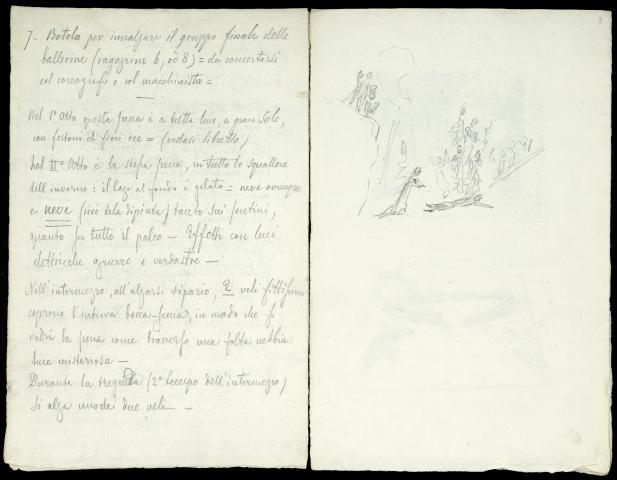 7- Botola per innalzare il gruppo finale delle
ballerine (ragazzine 6, od 8) = da concertarsi
col coreografo e col macchinista =
Nel 1° Atto questa scena è a tutta luce, a gran sole,
con festoni di fiori ecc = (vedasi libretto)
Nel II° Atto è la stessa scena, in tutto lo squallore
dell'inverno: il lago al fondo è gelato = neve ovunque
e neve (cioè tela dipinta) tanto sui sentieri,
quanto su tutto il palco — Effetti con luci
elettriche azzurre e verdastre —
Nell'intermezzo, all'alzarsi sipario, 2 veli fittissimi
coprono l'intiera bocca-scena, in modo che si
vedrà la scena come traverso una folta nebbia:
luce misteriosa —
Durante la tregenda (2° tempo dell'intermezzo)
si alza uno de due veli —
3